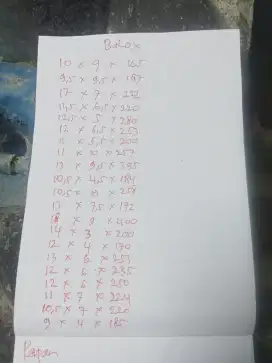 Balox
10 x 9 x 265
9,5 x 8,5 x 187
12 x 7 x 232
11,5 x 6,5 x 220
12,5 x 5 x 280
12 x 6,5 x 253
11 x 5,5 x 200
11 x 10 x 257
13 x 9,5 x 295
10,5 x 4,5 x 184
10,5 x 10 x 259
11 x 7,5 x 192
18 x 8 x 400
14 x 3 x 200
12 x 4 x 190
13 x 6 x 253
12 x 6 x 235
12 x 6 x 250
11 x 7 x 224
10,5 x 7 x 220
9 x 4 x 185
Papan